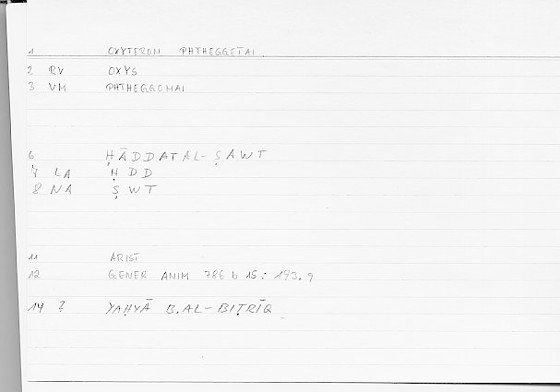 1 OXYTERON PHTHEGGETAI
2 RV OXYS
3 VM PHTHEGGOMAI
6 ḤĀDDATAL-ṢAWT
7 LA ḤDD
8 NA ṢWT
11 ARIST
12 GENER ANIM 786 b 15 : 193.9
14 ? YAḤYĀ B.AL-BIṬRĪQ